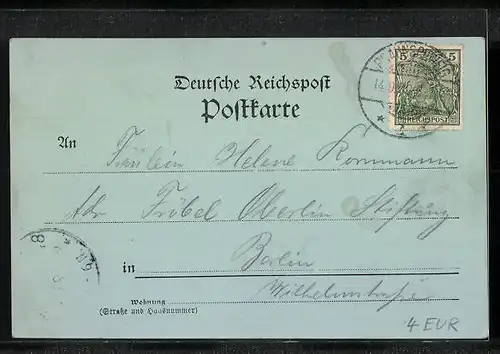 Deutsche Reichspost
Postkarte
5 5
REICHSPOST
14
An Fräulein Helene Kornmann
Adr Fröbel Oberlin Stiftung
in Berlin
Wohnung Wilhelmstraße
(Straße und Hausnummer)
4 EUR